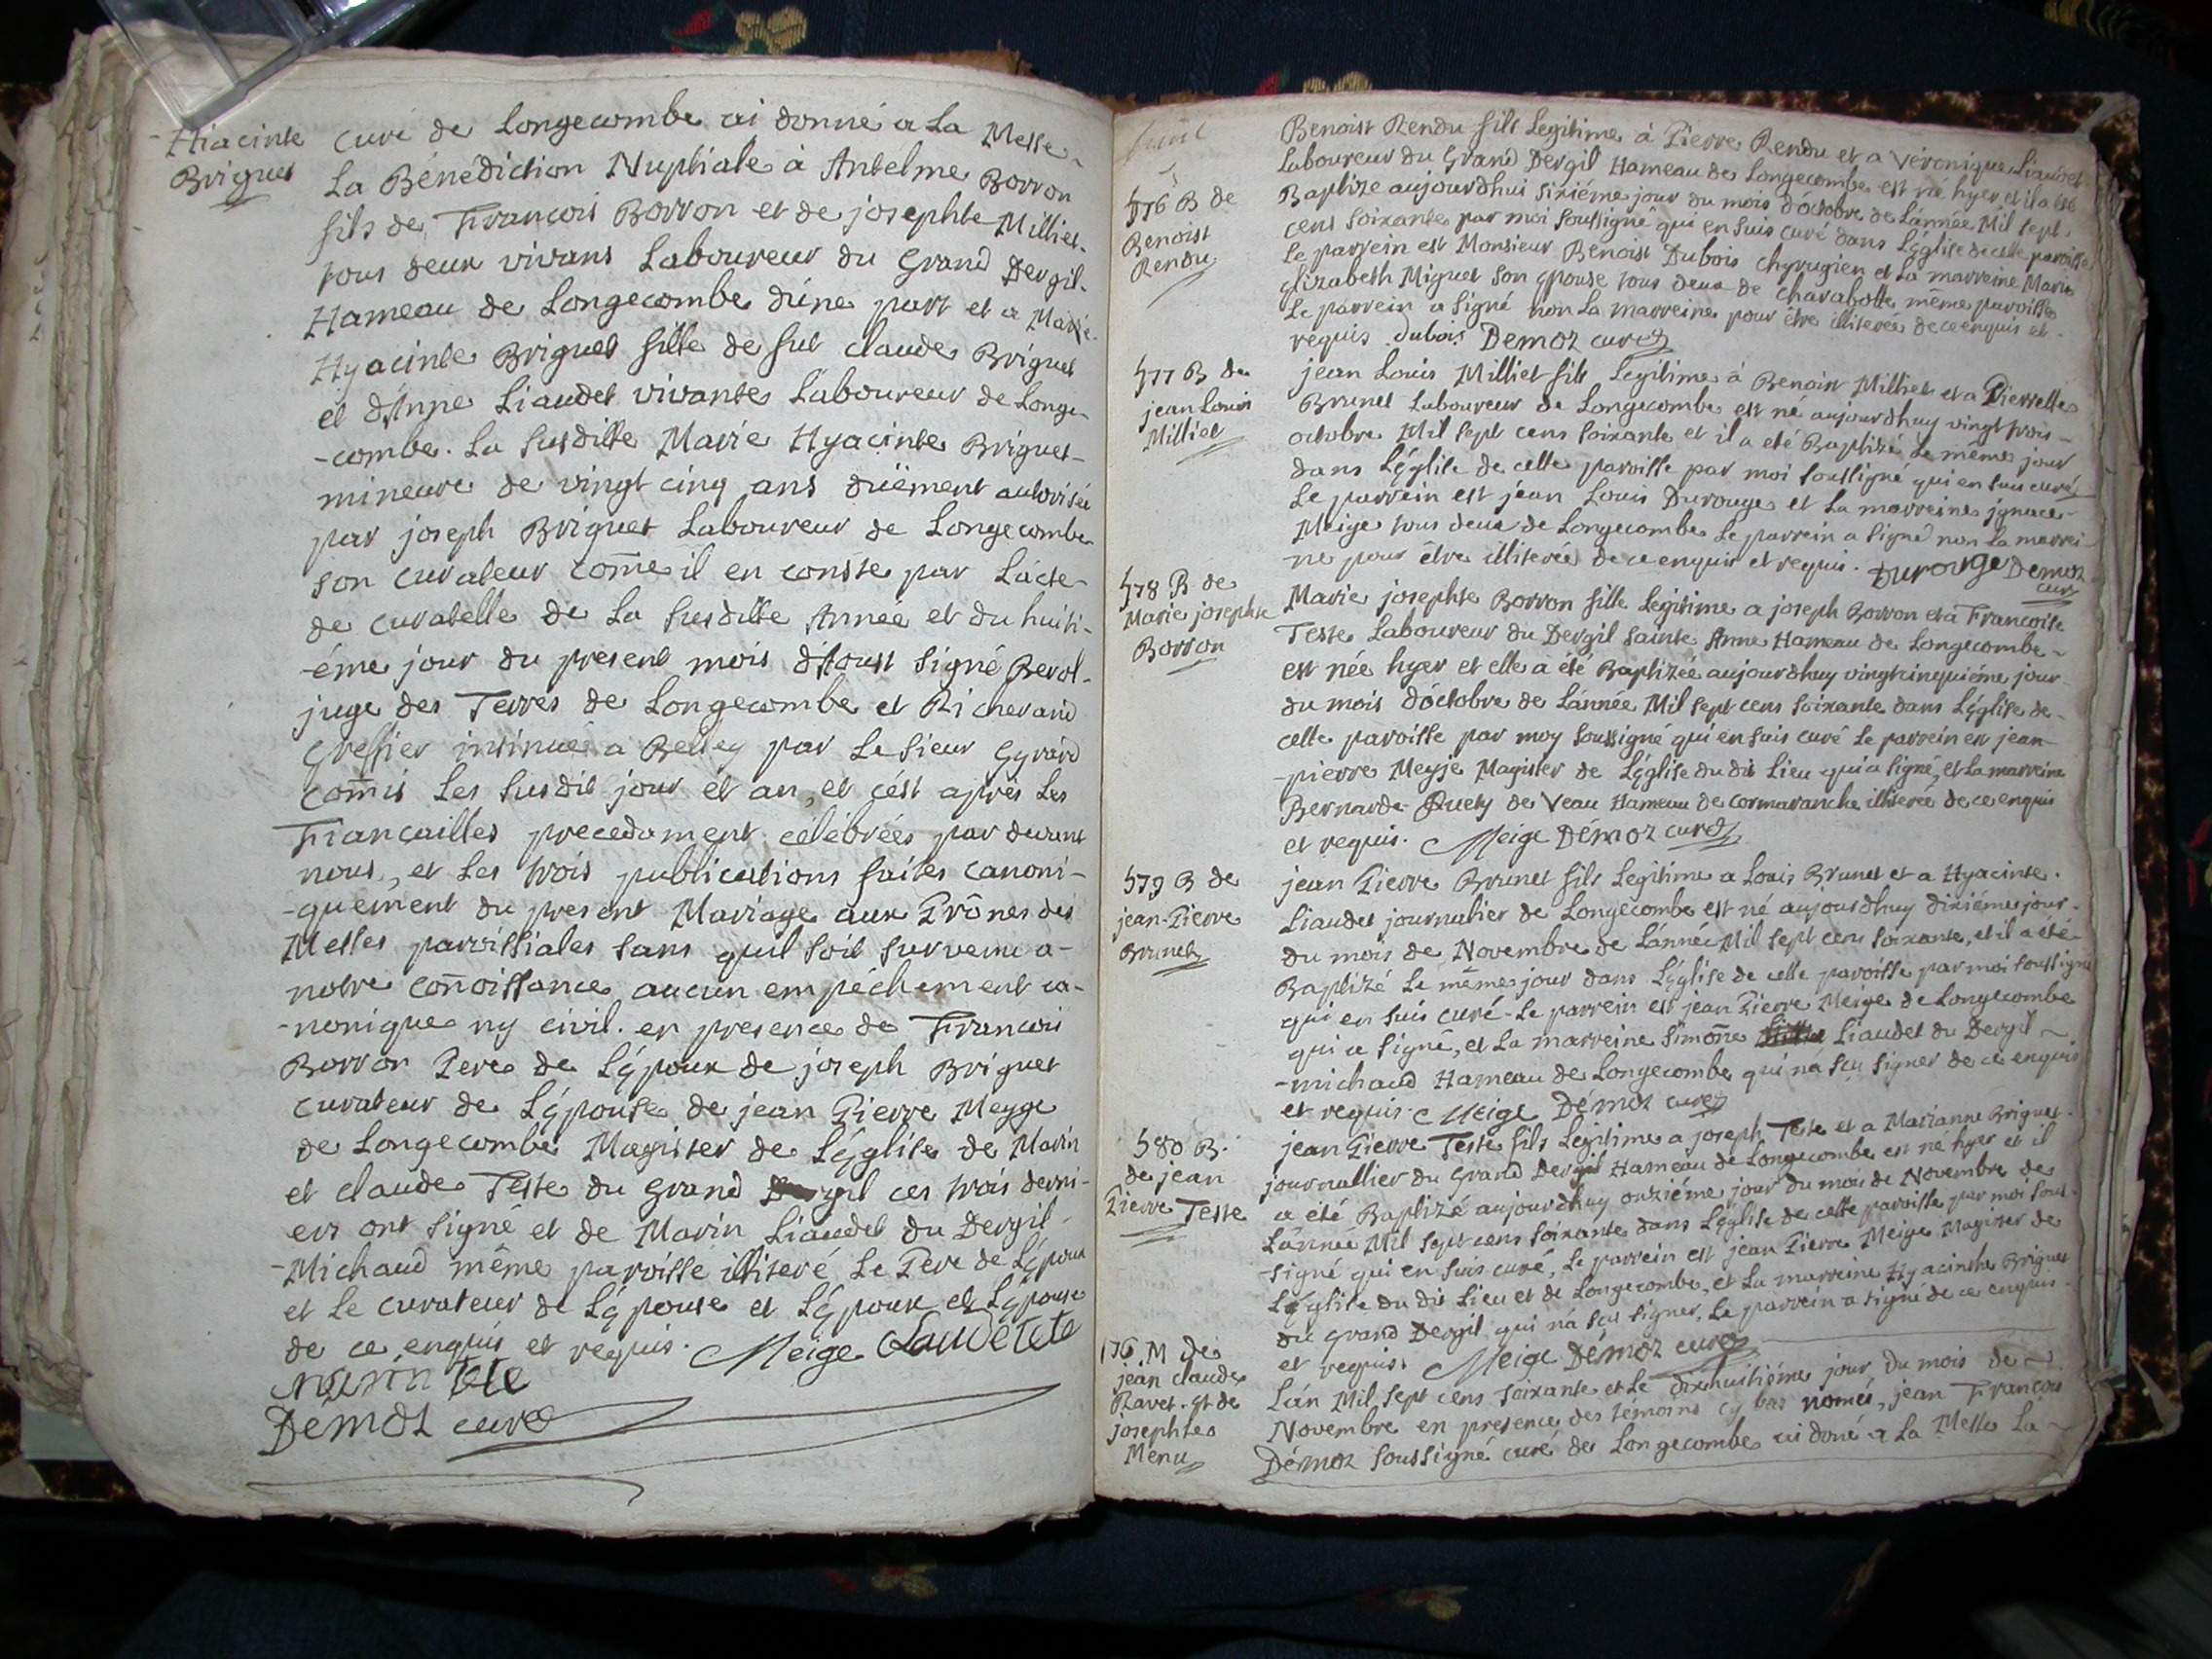 Hiacinte
Briguet
Curé de Longecombe ai donné a La Messe
La Bénédiction Nuptiale à Antelme Borron
fils de Francois Borron et de josephte Milliet
tous deux vivans Laboureur du Grand Dergil
Hameau de Longecombe dúne part et a Marie
Hyacinte Briguet fille de fut claude Briguet
et dAnne Liaudet vivante Laboureur de Longe-
-combe. La Susditte Marie Hyacinte Briguet
mineure de vingt cinq ans düement authorisée
par joseph Briguet Laboureur de Longecombe
son curateur come il en conste par Lácte
de curatelle de La susditte Année et du huiti-
-éme jour du present mois dAoust signé Berol
juge des Terres de Longecombe et Richerand
Greffier insinué a Belley par Le sieur Gyrard
comis Les susdit jour et an, et cést aprés Les
Francailles precedament célébrées par devant
nous, et Les trois publications faites canoni-
-quement du present Mariage aux Prônes des
Messes paroissiales sans quil soit survenu a
notre conoissance aucun empéchement ca-
-nonique ny civil. en presence de Francois
Borron Pere de Lépoux de joseph Briguet
curateur de Lépouse de jean Pierre Meyge
de Longecombe Magister de Léglise de Marin
et claude Teste du Grand Dergil ces trois derni-
ers ont signé et de Marin Liaudet du Dergil
-Michaud méme paroisse illiteré Le Pere de Lépoux
et Le curateur de Lépouse et Lépoux et Lépouse
de ce enquis et requis. Meige Laude tete
marin tete
Demoz curé
576 B de
Benoist
Rendu
Benoist Rendu fils Legitime à Pierre Rendu et a Véronique Liaudet
Laboureur du Grand Dergil Hameau de Longecombe est né hyer et il a été
Baptize aujourdhui sixiéme jour du mois dóctobre de Lánnée Mil sept
cens soixante par moi soussigné qui en suis curé dans Léglise de cette paroisse
Le parrein est Monsieur Benoist Dubois chyrugien et La marreine Marie
Elizabeth Miguet son épouse tous deux de Charabotte même paroisse
Le parrein a signé non La marreine pour étre illiterée de ce enquis et
requis. dubois Demoz curé
577 B de
jean Louis
Milliet
jean Louis Milliet fils Legitime à Benoist Milliet et a Pierrette
Brunet Laboureur de Longecombe est né aujourdhuy vingt trois
octobre Mil sept cens soixante et il a été Baptizé Le même jour
dans Léglise de cette paroisse par moi soussigné qui en suis curé
Le parrein est jean Louis Durouge et La marreine jgnace
Meige tous deux de Longecombe Le parrein a signé non La marrei-
ne pour étre illiterée de ce enquis et requis. Durouge Demoz
curé
578 B de
Marie josephte
Borron
Marie josephte Borron fille Legitime a joseph Borron et a Francoise
Teste Laboureur du Dergil sainte Anne Hameau de Longecombe
est née hyer et elle a été Baptizée aujourdhuy vingt cinquiéme jour
du mois dóctobre de Lánnée Mil sept cens soixante dans Léglise de
cette paroisse par moy soussigné qui en suis curé Le parrein est jean
-pierre Meyje Magister de Léglise du dit Lieu qui a signé, et La marreine
Bernarde Quety de Veau Hameau de Cormaranche illiterée de ce enquis
et requis. Meige Démoz curé
579 B de
jean-Pierre
Brunet
jean Pierre Brunet fils Legitime a Louis Brunet et a Hyacinte
Liaudet journalier de Longecombe est né aujourdhuy dixiéme jour
du mois de Novembre de Lánnée Mil sept cens soixante, et il a été
Baptizé Le même jour dans Léglise de cette paroisse par moi soussigné
qui en suis curé Le parrein est jean Pierre Meige de Longecombe
qui a signé, et La marreine Simone Liaudet du Dergil
-michaud Hameau de Longecombe qui ná sçu signer de ce enquis
et requis. Meige Démoz curé
580 B.
de jean
Pierre Teste
jean Pierre Teste fils Legitime a joseph Teste et a Marianne Briguet
journallier du Grand Dergil Hameau de Longecombe est né hyer et il
a été Baptizé aujourdhuy onziéme jour du mois de Novembre de
Lánnée Mil sept cens soixante dans Léglise de cette paroisse par moi sous-
-signé qui en suis curé, Le parrein est jean Pierre Meige Magister de
Léglise du dit Lieu et de Longecombe, et La marreine Hyacinthe Briguet
du Grand Dergil qui ná sçu signer, Le parrein a signé de ce enquis
et requis. Meige Démoz curé
176 M de
jean claude
Ravet. et de
josephte
Menu
Lán Mil sept cens soixante et Le dixhuitiéme jour du mois de
Novembre en presence des témoins cy bas només, jean François
Démoz soussigné curé de Longecombe ai doné a La Messe La